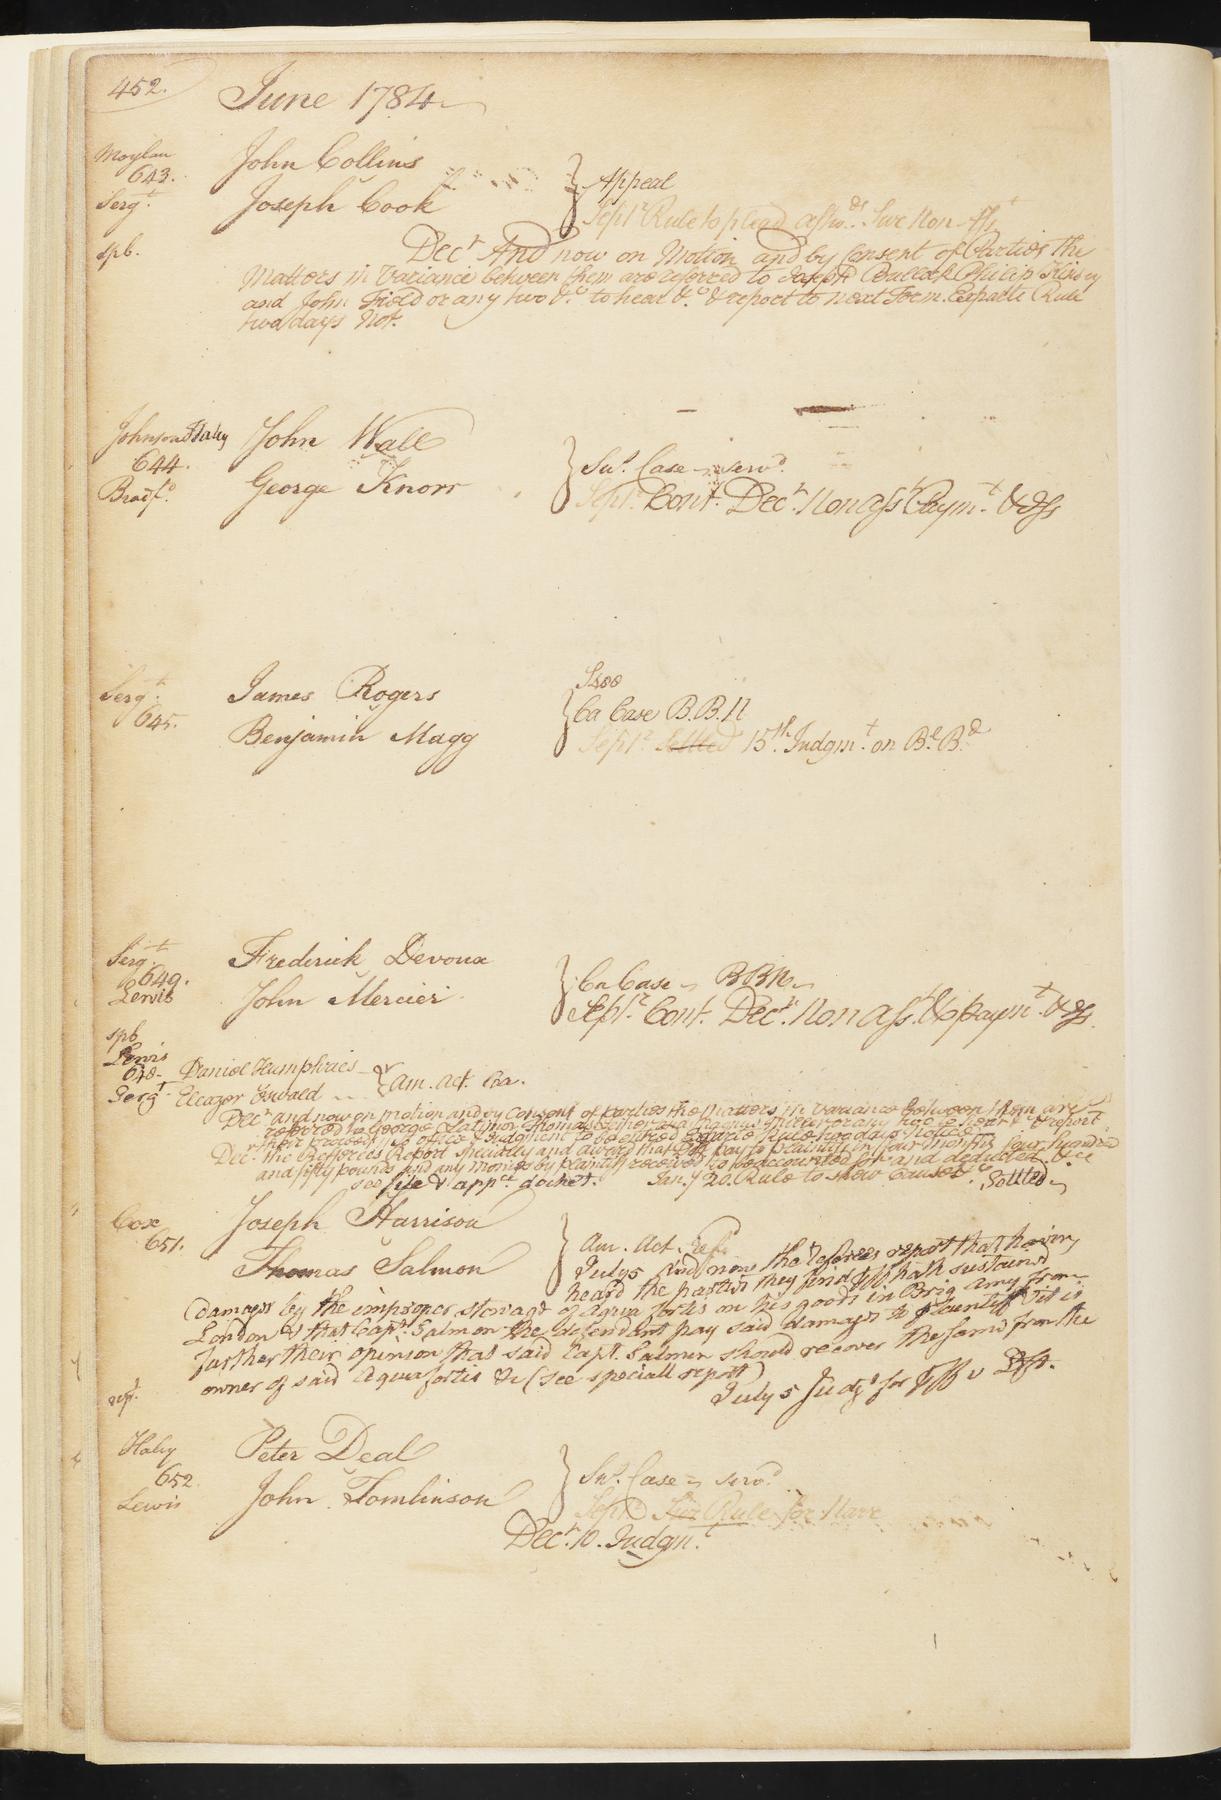 452.
June 1784
Moylan
643.
Serg.t
spb.
John Collins
Joseph Cook
Appeal
Sept.r Rule to plead
Dec.r And now on Motion and by Consent of Parties the
Matters in Variance between them are referred to Joseph Bullock Philip
and John Field or any two &.c to hear &.c & report to next Term. Exparte Rule
two days Not.
Johnson Haly
644.
Bradf.d
John Wall
George Knorr
Su.s Case serv.d
Sept.r Cont. Dec.r Non Ass.t Paym.t & Iss
Serg.t
645.
James Rogers
Benjamin Magg
Issue
Ca Case B.B.N
Sept.r Settled 15th Judgm.t on B.l B.d
Serg.t
649.
Lewis
Frederick Devoux
John Mercier
Ca Case BBN
Sept.r Cont. Dec.r Non Ass.t & paym.t & Iss.
spb
Lewis
648.
Serg.t
Daniel Humphries
Eleazer Oswald
Am. Act. Ca.
Dec.r and now on motion and by Consent of Parties the Matters in Variance between them are
referred to George Latimer Thomas or any two to hear & report
their proceedings office & Judgment to be entred Exparte Rule two days Notice
Dec.r The Refferees Report specially and award that Def.t pay to plaintiff in four months four hundred
and fifty pounds and any monies by plaintiff received to be accounted for and deducted &c
see file & app.ce docket. Jan.y 20. Rule to shew Cause &c Settled
Cox
651.
ref.
Joseph Harrison
Thomas Salmon
Am. Act. Ref.d
July 5 And now the referees report that having
heard the parties they find Plff hath sustained
damages by the improper stowage of Aqua fortis on his goods in Brig Amy from
London & that Capt. Salmon the defendant pay said damages to plaintiff & it is
further their opinion that said Capt. Salmon should recover the same from the
owner of said Aqua fortis &c (see speciall report)
July 5 Judg.t for Plff v Deft.
Haly
652
Lewis
Peter Deal
John Tomlinson
Su.s Case serv.d
Sept.r Sur Rule for Narr
Dec.r 10. Judgm.t